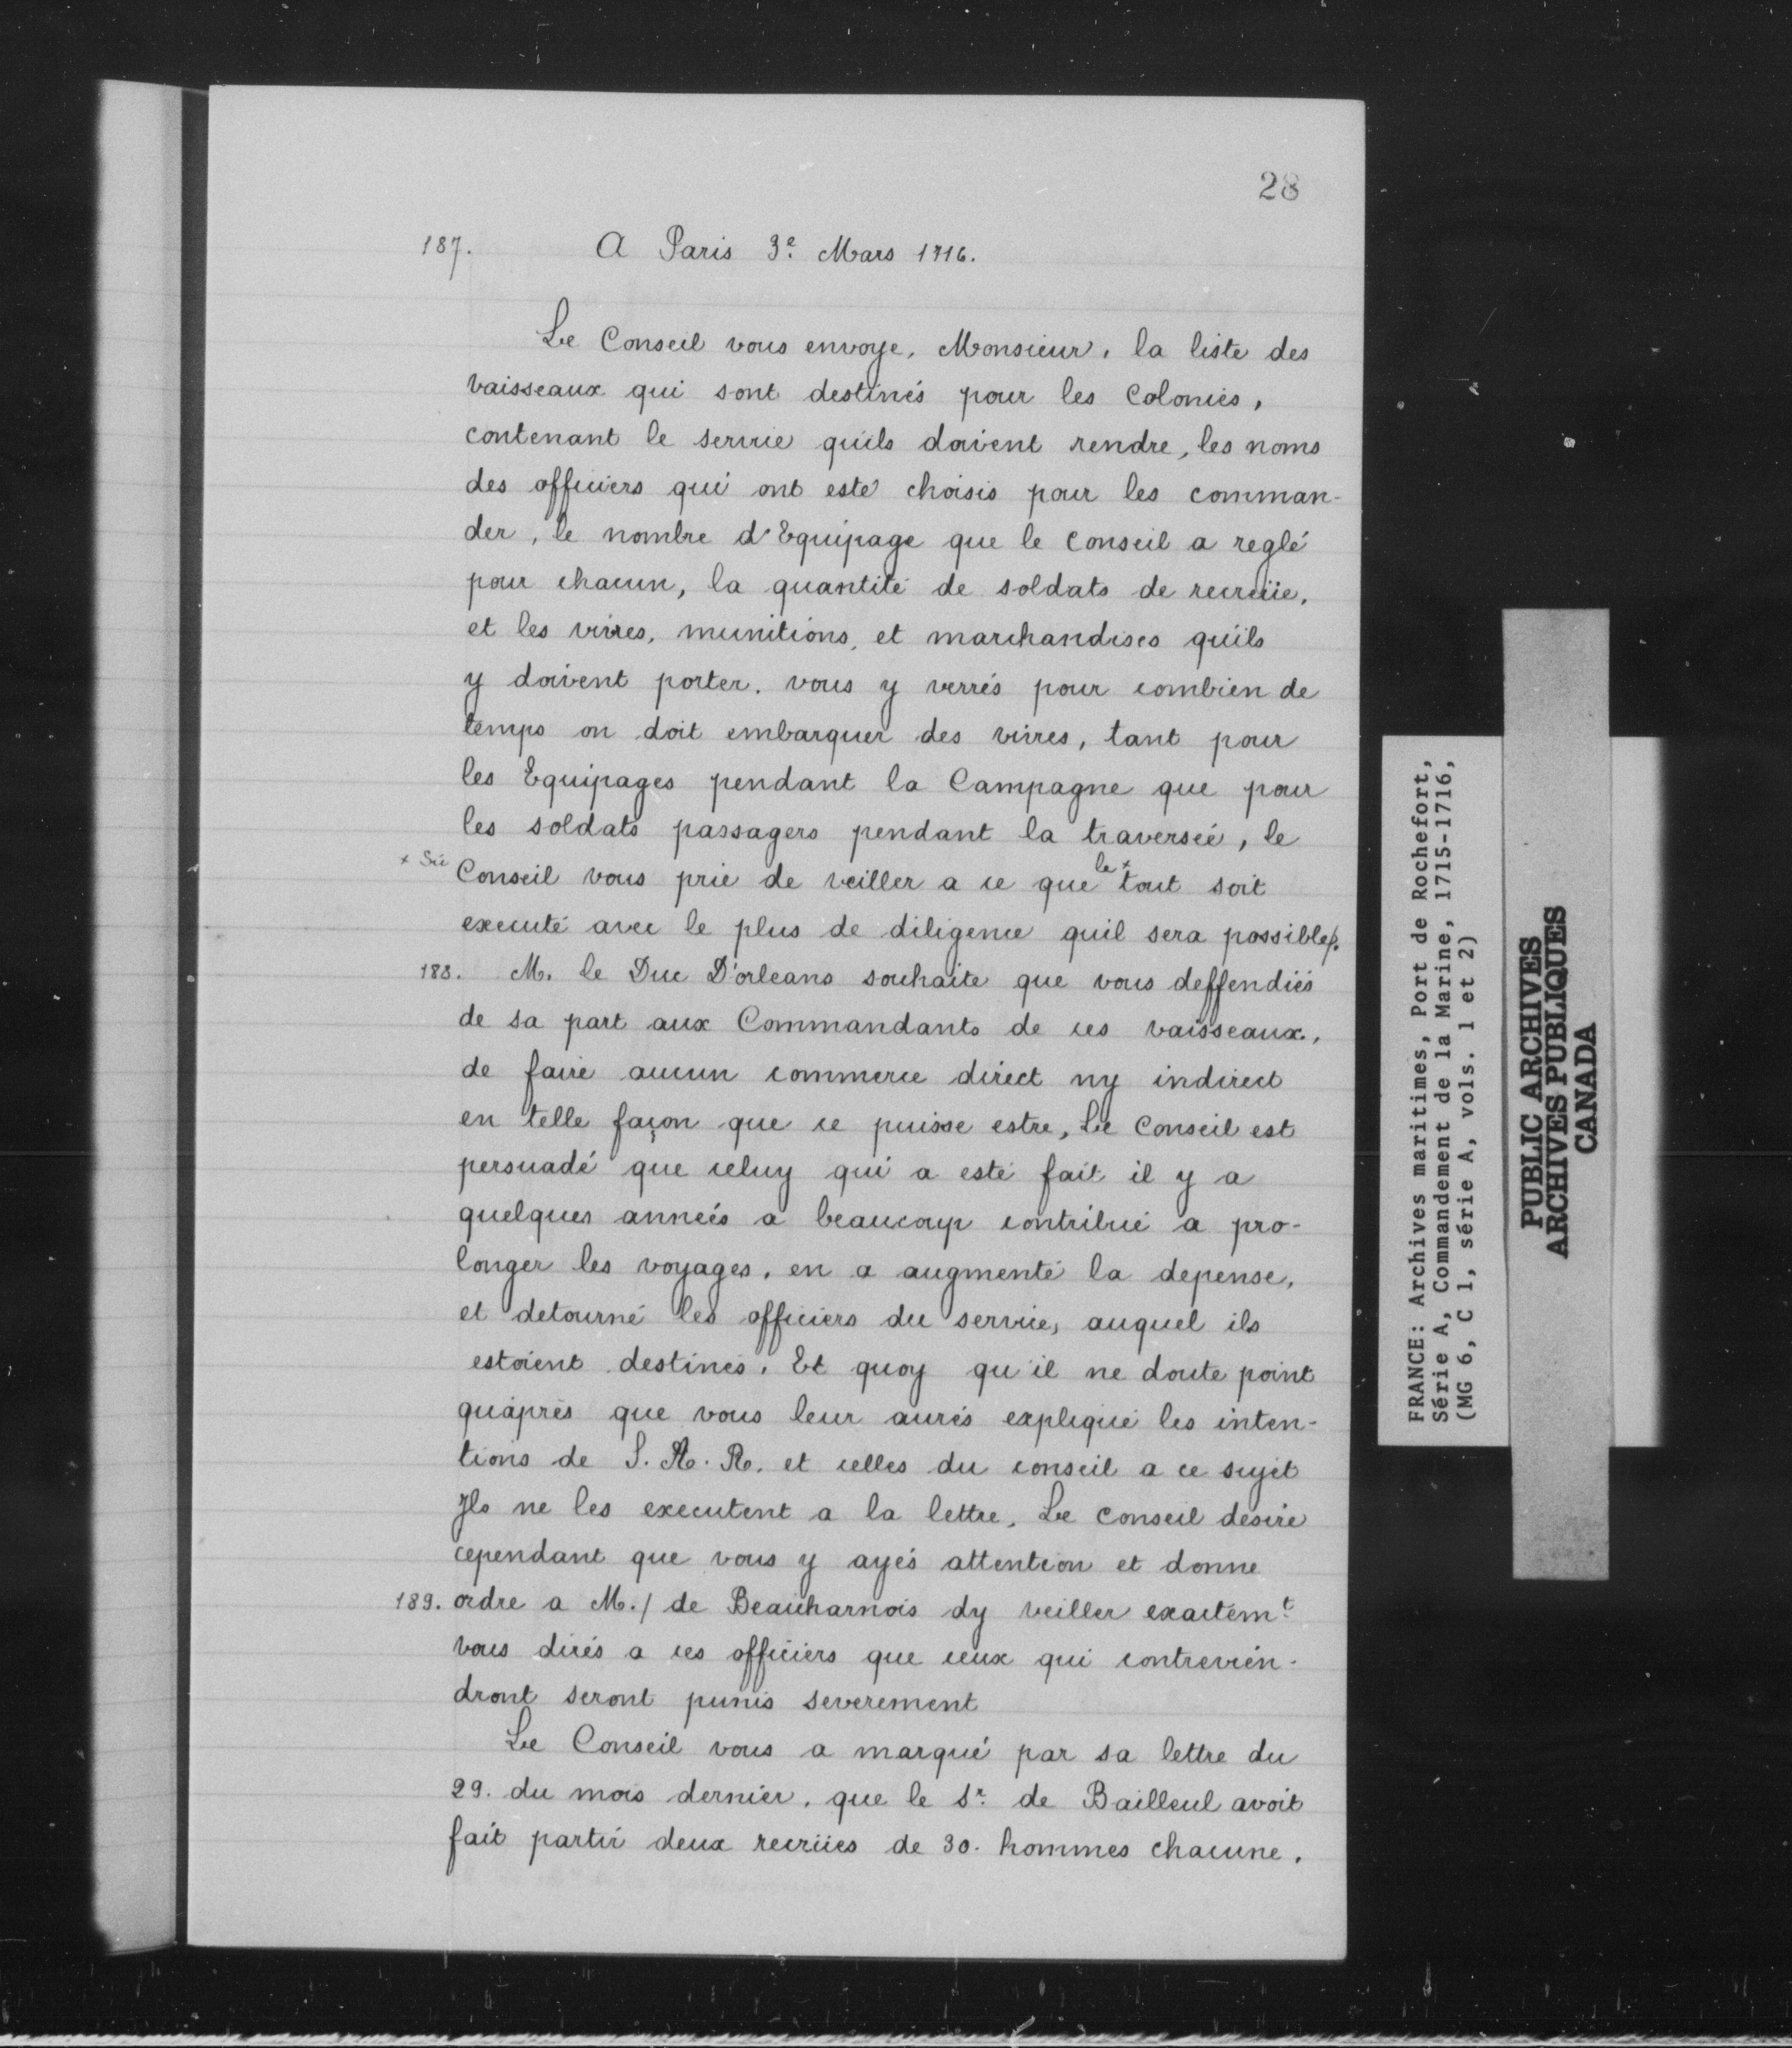 28
187. A Paris 3e. Mars 1716.
Le Conseil vous envoye, Monsieur, la liste des
vaisseaux qui sont destinés pour les Colonies,
contenant le service quils doivent rendre, les noms
des officiers qui ont esté choisis pour les comman-
der, le nombre d'Equipage que le conseil a reglé
pour chacun, la quantité de soldats de recrüe,
et les vivres, munitions, et marchandises quils
y doivent porter. vous y verrés pour combien de
temps on doit embarquer des vivres, tant pour
les Equipages pendant la Campagne que pour
les soldats passagers pendant la traversée, le
+ Sic Conseil vous prie de veiller a ce que le + tout soit
executé avec le plus de diligence quil sera possible/.
188. M. le Duc D'orleans souhaite que vous deffendiés
de sa part aux Commandants de ces vaisseaux,
de faire aucun commerce direct ny indirect
en telle façon que ce puisse estre, Le Conseil est
persuadé que celuy qui a esté fait il y a
quelques années a beaucoup contribué a pro-
longer les voyages, en a augmenté la depense,
et detourné les officiers du service, auquel ils
estoient destinés. Et quoy qu'il ne doute point
quaprès que vous leur aurés expliqué les inten-
tions de S. A. R. et celles du conseil a ce sujet
Ils ne les executent a la lettre, Le Conseil desire
cependant que vous y ayés attention et donne
189. ordre a M./ de Beauharnois dy veiller exactemt.
vous dirés a ces officiers que ceux qui contrevien-
dront seront punis severement
Le Conseil vous a marqué par sa lettre du
29. du mois dernier, que le Sr. de Bailleul avoit
fait partir deux recrües de 30. hommes chacune.
FRANCE: Archives maritimes, Port de Rochefort,
Série A, Commandement de la Marine, 1715-1716,
(MG 6, C 1, série A, vols. 1 et 2)
PUBLIC ARCHIVES
ARCHIVES PUBLIQUES
CANADA